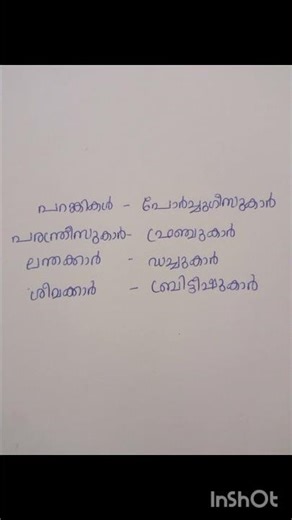 പറങ്കികൾ - പോർച്ചുഗീസുകാർ
പരന്ത്രീസുകാർ - ഫ്രഞ്ചുകാർ
ലന്തക്കാർ - ഡച്ചുകാർ
ശീമക്കാർ - ബ്രിട്ടീഷുകാർ
InShOt